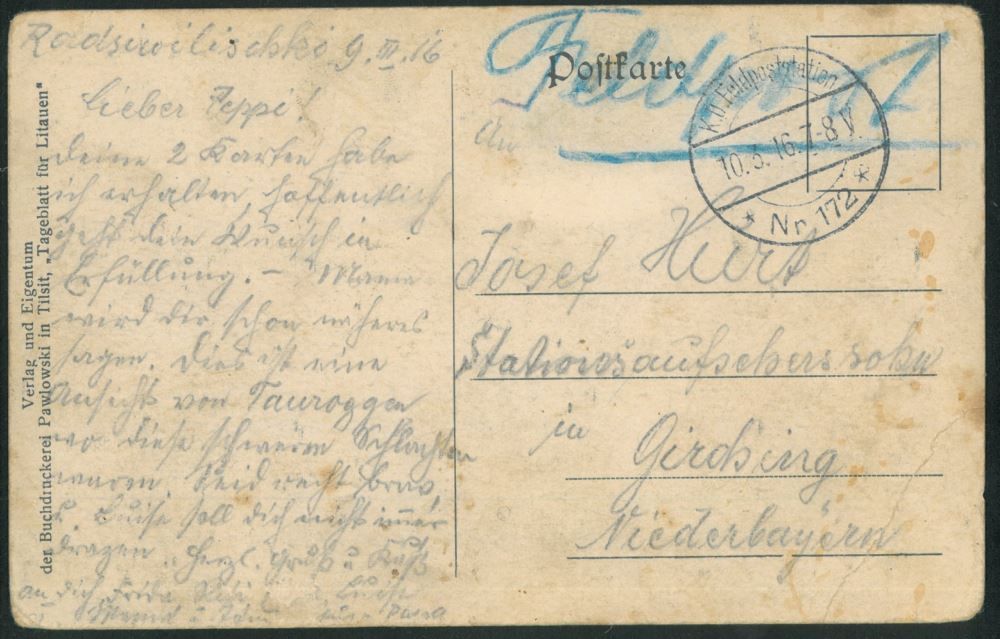 Radsiwilischki 9. III. 16
Lieber Peppi!
Deine 2 Karten habe
ich erhalten, hoffentlich
geht dein Wunsch in
Erfüllung. – Mama
wird dir schon näheres
sagen. Dies ist eine
Ansicht von Tauroggen
wo diese schweren Schlachten
waren. Seid recht brav,
u. Luise soll dich nicht immer
Herzl. Gruß u. Kuß
an dich, Frida
u. Luise
Mama u.
Verlag und Eigentum
der Buchdruckerei Pawlowski in Tilsit, „Tageblatt für Litauen"
Postkarte
Feldpost
K.D. Feldpoststation
10.3.16.7-8V
* Nr. 172 *
An
Josef Hurt
Stationsaufseherssohn
in
Girching
Niederbayern